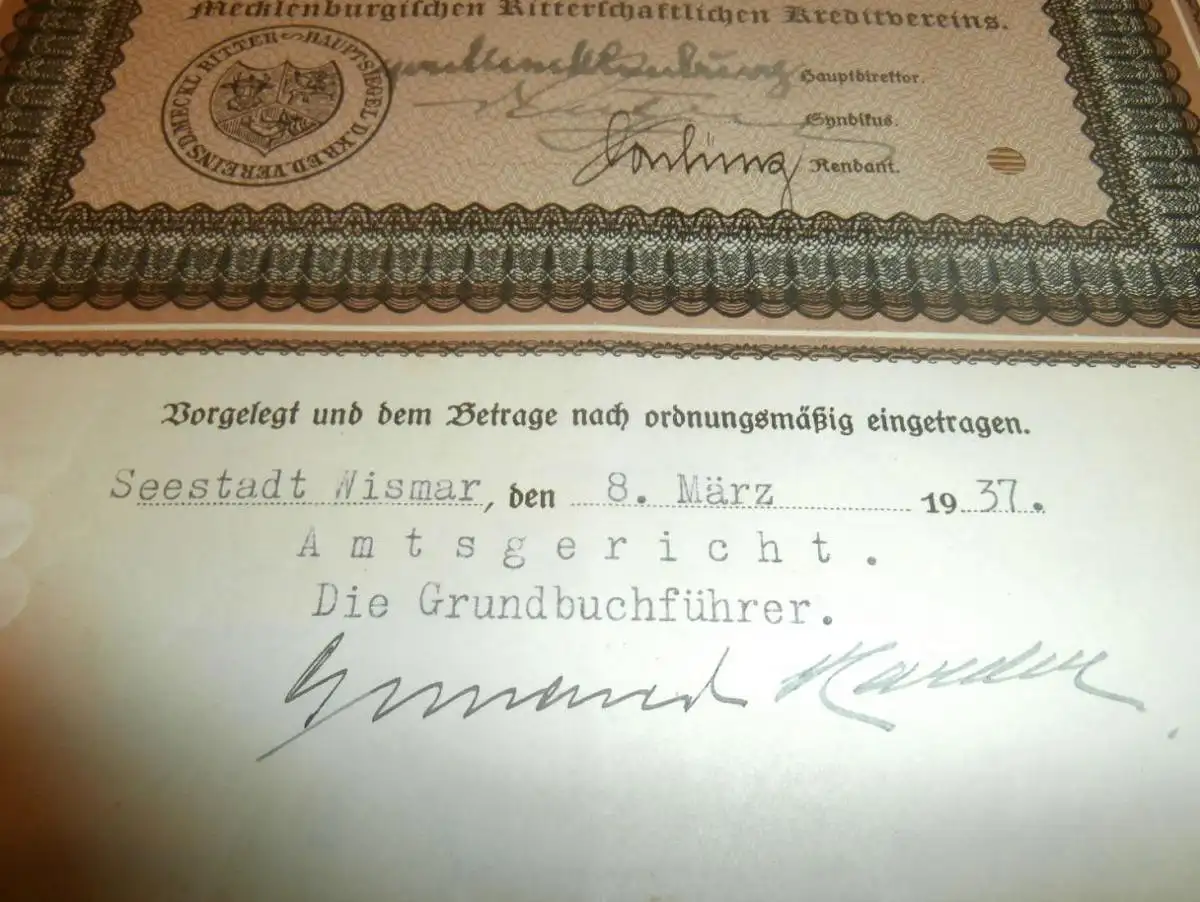 Mecklenburgischen Ritterschaftlichen Kreditvereins.
RITTER~HAUPTSIEGEL D.KRED.VEREINS D.MECKL
Hauptdirektor.
Syndikus.
Rendant.
Vorgelegt und dem Betrage nach ordnungsmäßig eingetragen.
Seestadt Wismar, den 8. März 1937.
Amtsgericht.
Die Grundbuchführer.